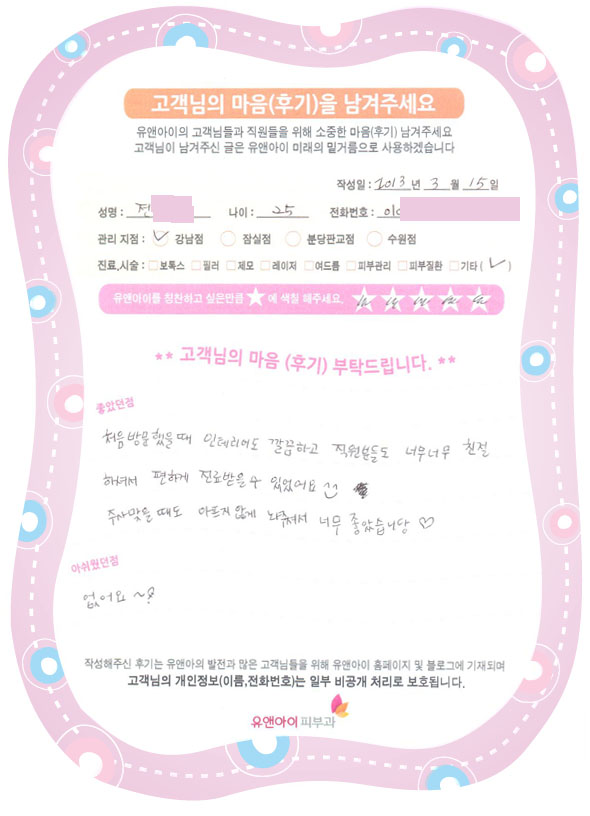 고객님의 마음(후기)을 남겨주세요
유앤아이의 고객님들과 직원들을 위해 소중한 마음(후기) 남겨주세요
고객님이 남겨주신 글은 유앤아이 미래의 밑거름으로 사용하겠습니다
작성일 : 2013 년 3 월 15 일
성명 : 전 나이 : 25 전화번호 : 01
관리 지점 : 강남점 잠실점 분당판교점 수원점
진료,시술 : 보톡스 필러 제모 레이저 여드름 피부관리 피부질환 기타 ( ✓ )
유앤아이를 칭찬하고 싶은만큼 ★ 에 색칠 해주세요.
** 고객님의 마음 (후기) 부탁드립니다. **
좋았던점
처음방문했을때 인테리어도 깔끔하고 직원분들도 너무너무 친절
하셔서 편하게 진료받을수 있었어요
주사맞을때도 아프지않게 놔주셔서 너무 좋았습니당 ♡
아쉬웠던점
없어요 ~
작성해주신 후기는 유앤아의 발전과 많은 고객님들을 위해 유앤아이 홈페이지 및 블로그에 기재되며
고객님의 개인정보(이름,전화번호)는 일부 비공개 처리로 보호됩니다.
유앤아이 피부과